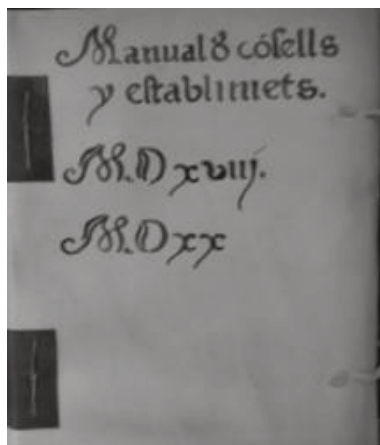 Manual đ cõſells
y eſtablimẽts.
M.D xviij.
M.D xx